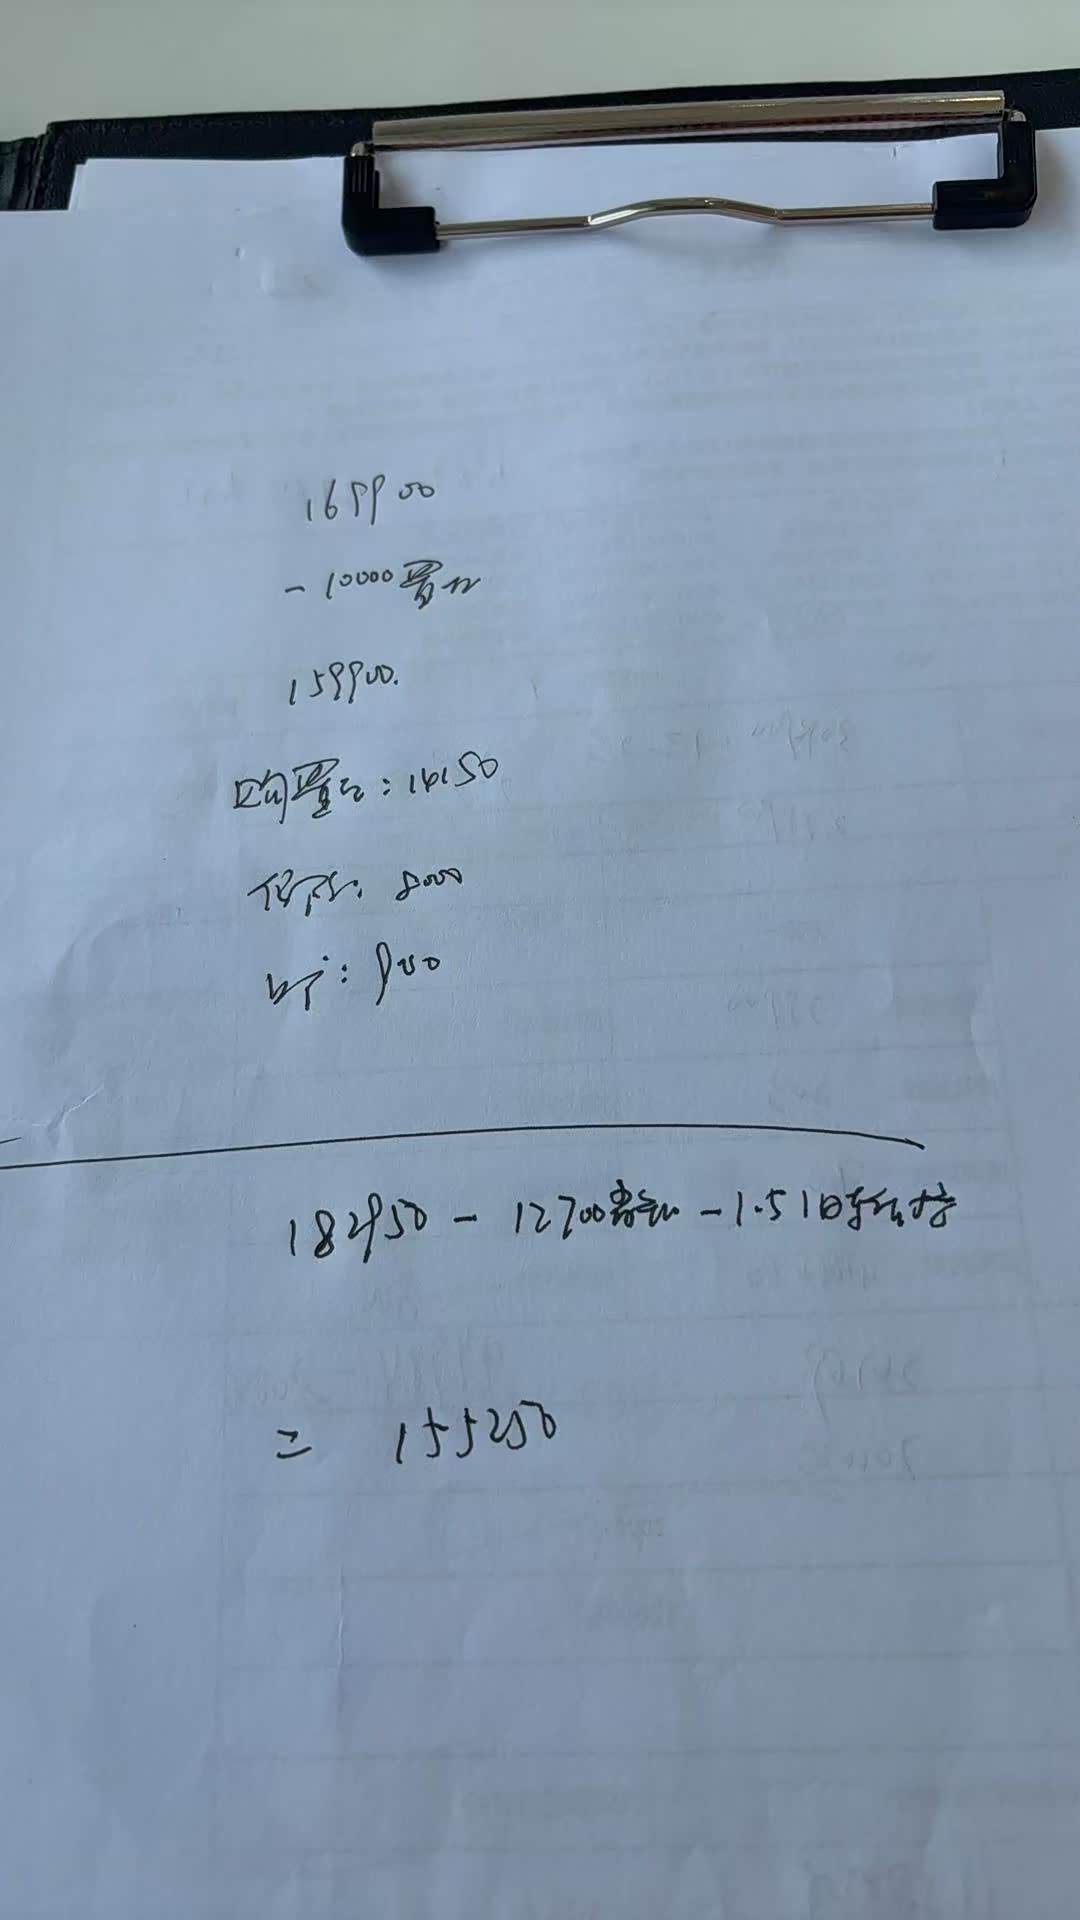 169900
- 10000置换
159900.
购置税:14150
保险:8000
上户:900
182950 - 12700 - 1.5旧车
= 155250